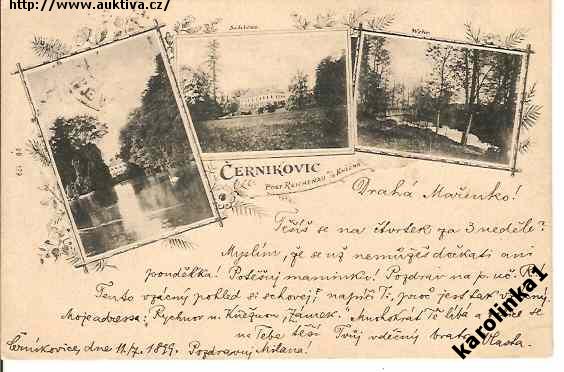 http://www.auktiva.cz/
Schloss
Wehr
ČERNIKOVIC
POST REICHENAU A/KNĚŽNA
Drahá Mařenko!
Těšíš se na čtvrtek za 3 neděle?
Myslím, že se už nemůžeš dočkati ani
pondělka! Potěšuj maminku! Pozdrav na p. uč.
Tento vzácný pohled si schovej, napíši Ti, proč jest tak vzácný.
Moje adressa: "Rychnov n. Kněžnou Zámek." Mnohokrát Tě líbá a se
na Tebe těší Tvůj vděčný bratr Vlasta.
Černíkovice, dne 11/7. 1899. Pozdravuj Milana!
karolinka1